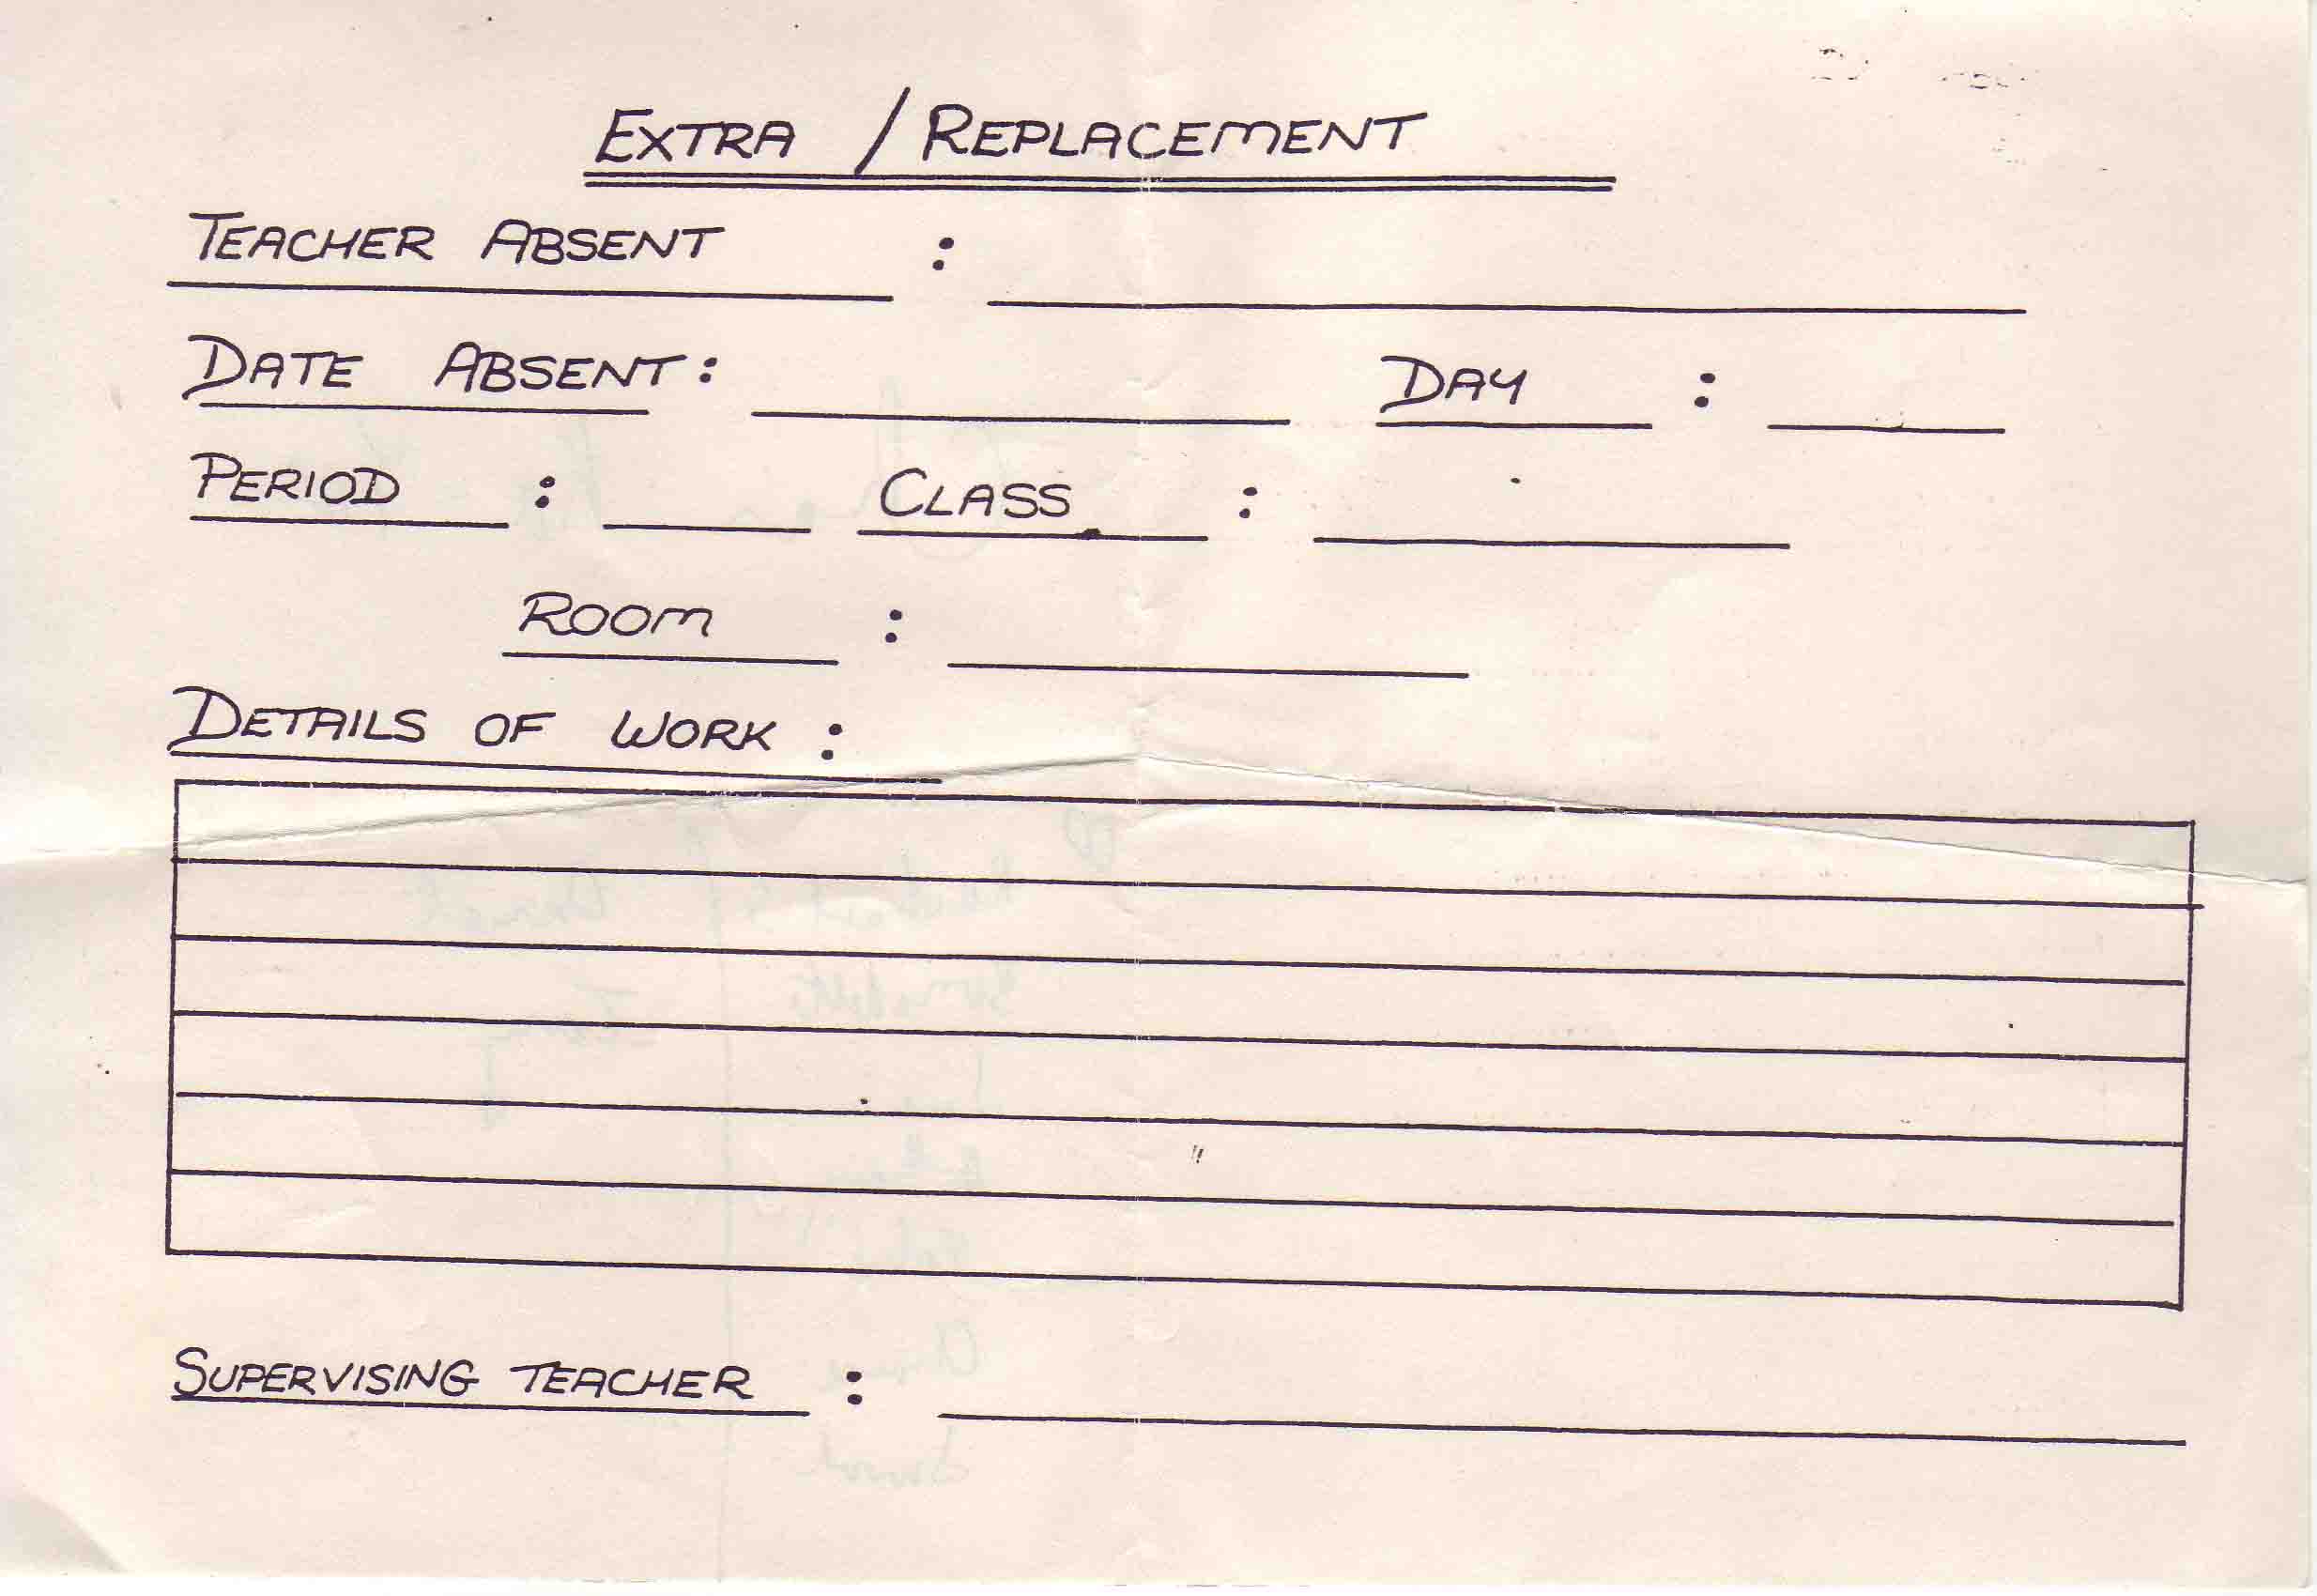 EXTRA / REPLACEMENT
TEACHER ABSENT :
DATE ABSENT : DAY :
PERIOD : CLASS :
ROOM :
DETAILS OF WORK :
SUPERVISING TEACHER :